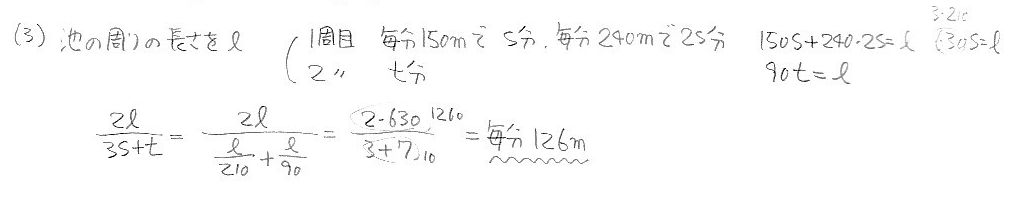 3・210
(3) 池の周りの長さをl ( 1周目 毎分150mで s分、毎分240mで2s分 150s+240・2s=l 630s=l
2 〃 t分 90t=l
2l/(3s+t) = 2l/(l/210 + l/90) = 2・630/(3+7) 1260 10 = 毎分126m